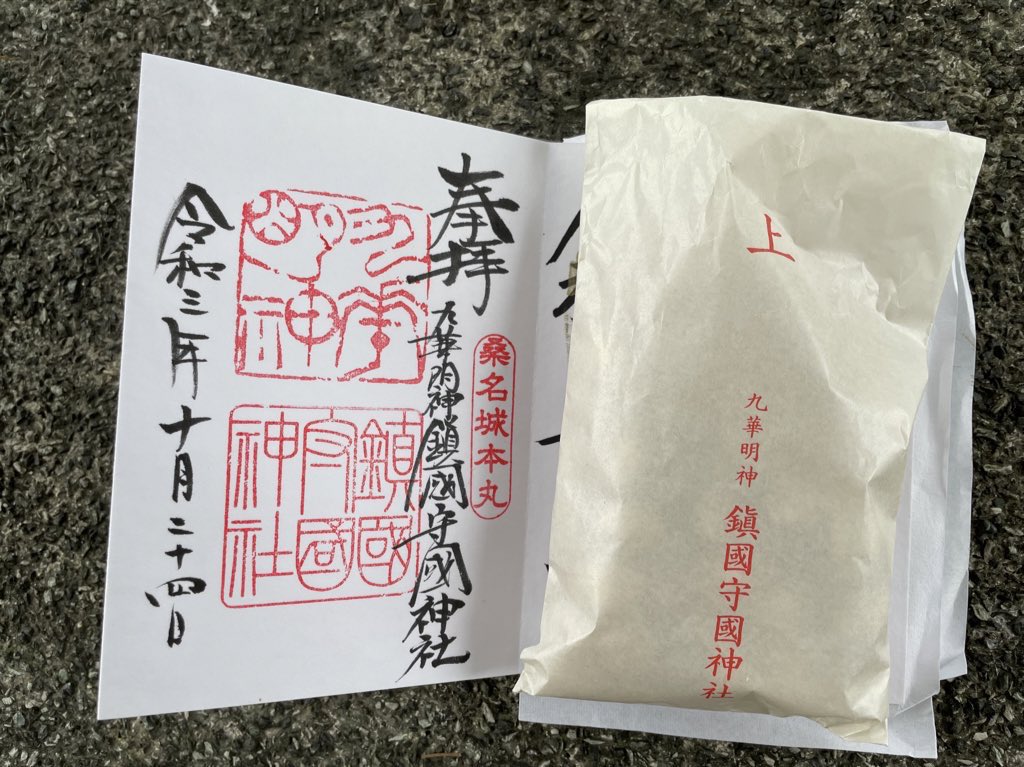 奉拝
桑名城本丸
九華明神鎮國守國神社
九華
明神
鎮國
守國
神社
令和三年十月二十四日
上
九華明神
鎮國守國神社